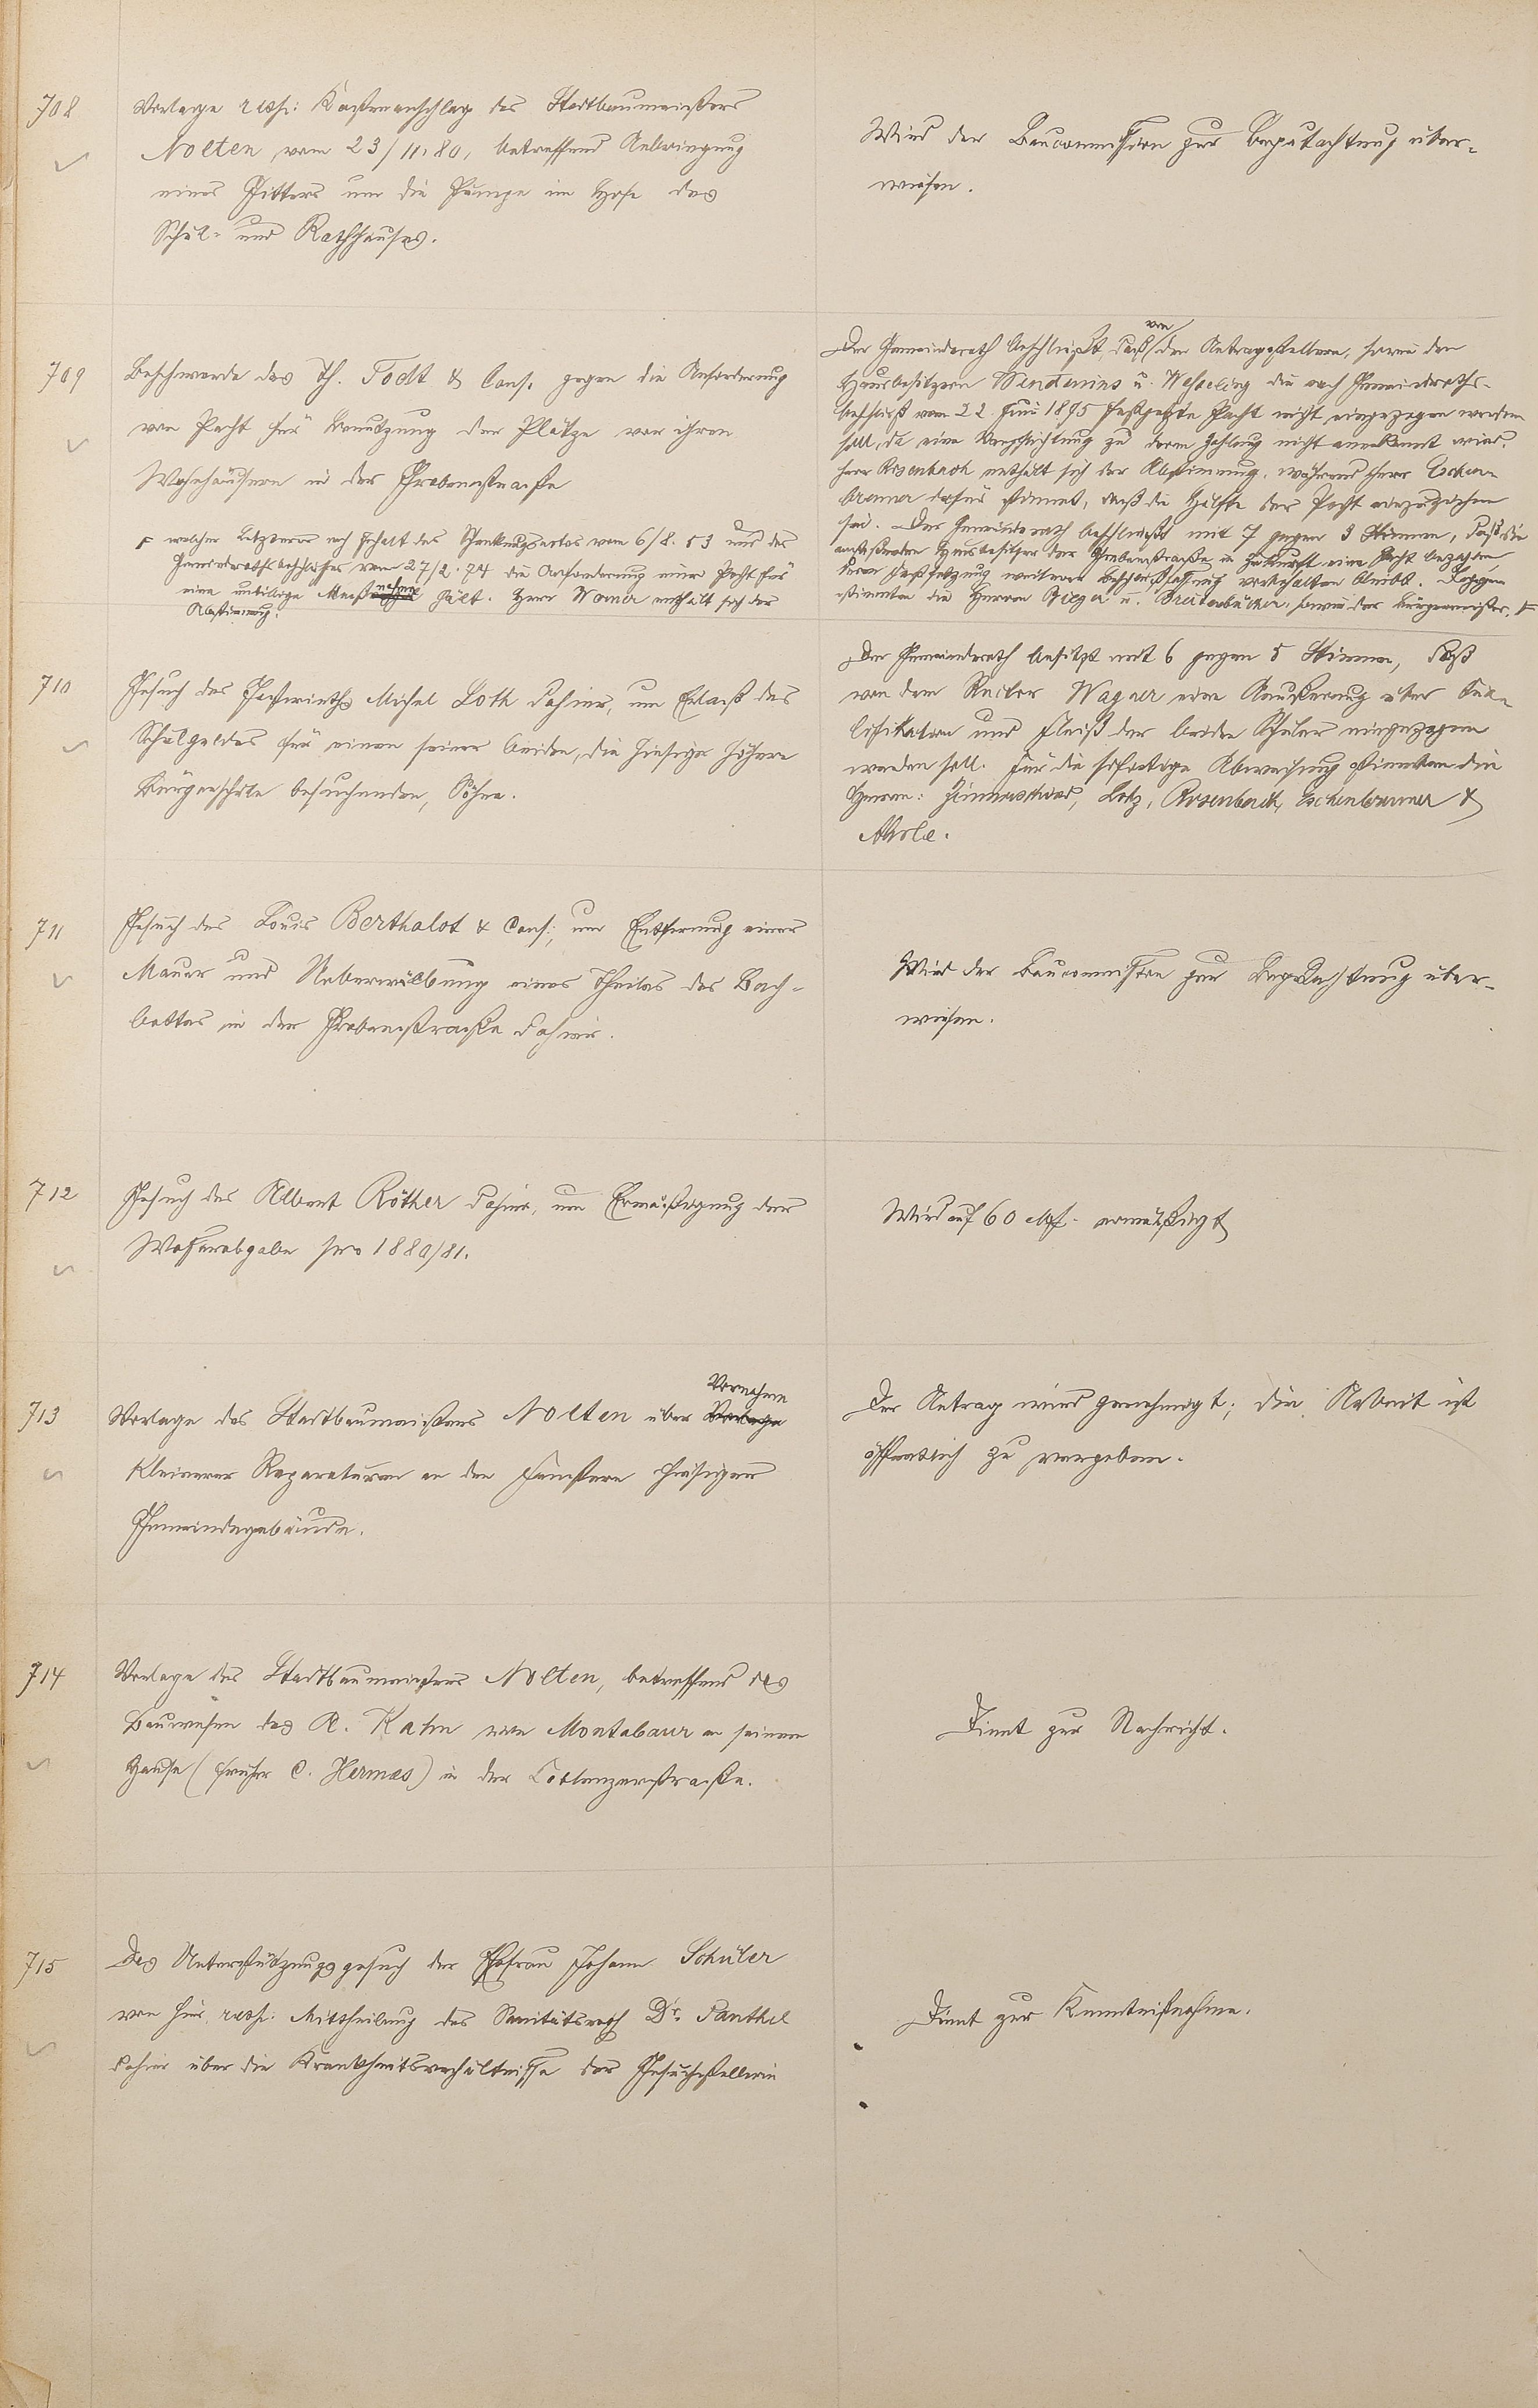 708
Vorlage resp: Kostenanschlag des Stadtbaumeisters
Nolten vom 23/11. 80, betreffend Anbringung
eines Gitters um die Pumpe im Hofe des
Schul- und Rathhauses.
Wird der Baucommission zur Begutachtung über-
wiesen.
709
Beschwerde des Th. Todt & Cons. gegen die Anforderung
von Pacht für Benutzung der Plätze vor ihren
Wohnhäusern in der Grabenstraße
welcher Letzterer nach Inhalt des Schenkungsactes vom 6/8. 53 und des
Gemeinderathsbeschlusses vom 27/2. 74 die Anforderung einer Pacht für
eine unbillige Maaßnahme hält. Herr enthält sich der
Abstimmung.
von
Der Gemeinderath beschließt, daß den Antragstellern, sowie den
Hausbesitzern u. Wesseling die nach Gemeinderaths-
beschluß vom 22. Juni 1875 festgesetzte Pacht nicht eingezogen werden
soll, da eine Verpflichtung zu deren Zahlung nicht anerkannt wird.
Herr Rosenbach enthält sich der Abstimmung, während Herr Eschen-
bremer dafür stimmt, daß die Hälfte der Pacht einzuziehen
sei. Der Gemeinderath beschließt mit 7 gegen 3 Stimmen, daß die
Hausbesitzer der Grabenstraße in Zukunft eine Pacht bezahlen,
deren Festsetzung weiterer Beschlußfassung vorbehalten bleibt. Dagegen
stimmten die Herren Gieger u. Breitenbücher, sowie der Bürgermeister,
710
Gesuch des Gastwirths Michel Loth dahier, um Erlaß des
Schulgeldes für einen seiner beiden, die hiesige höhere
Bürgerschule besuchenden, Söhne.
Der Gemeinderath besch mit 6 gegen 5 Stimmen, daß
von dem Rector Wagner eine Aeußerung über Qua-
lifikation und Fleiß der beiden Schüler eingezogen
werden soll. Für die sofortige Abweisung stimmten die
Herren: Zimmerschied, Lotz, Rosenbach, Eschenbremer &
711
Gesuch des Louis Berthalot & Cons:, um Entfernung einer
Mauer und Ueberwölbung eines Theiles des Bach-
bettes in der Grabenstraße dahier.
Wird der Baucommission zur Begutachtung über-
wiesen.
712
Gesuch des Albert Röther dahier, um Ermäßigung der
Wasserabgabe pro 1880/81.
Wird auf 60 Mk. ermäßigt
713
Vornahme
Vorlage des Stadtbaumeisters Nolten über Vorlage
kleinerer Reparaturen an den Fenstern hiesiger
Gemeindegebäude.
Der Antrag wird genehmigt; die Arbeit ist
öffentlich zu vergeben.
714
Vorlage des Stadtbaumeisters Nolten, betreffend das
Bauwesen des A. Kahn von Montabaur an seinem
Hause (früher C. Hermes) in der Coblenzerstraße.
Dient zur Nachricht.
715
Das Unterstützungsgesuch der Ehefrau Johann Schüler
von hier resp: Mittheilung des Sanitätsrath Dr. Panthel
dahier über die Krankheitsverhältnisse der Gesuchstellerin
Dient zur Kenntnißnahme.